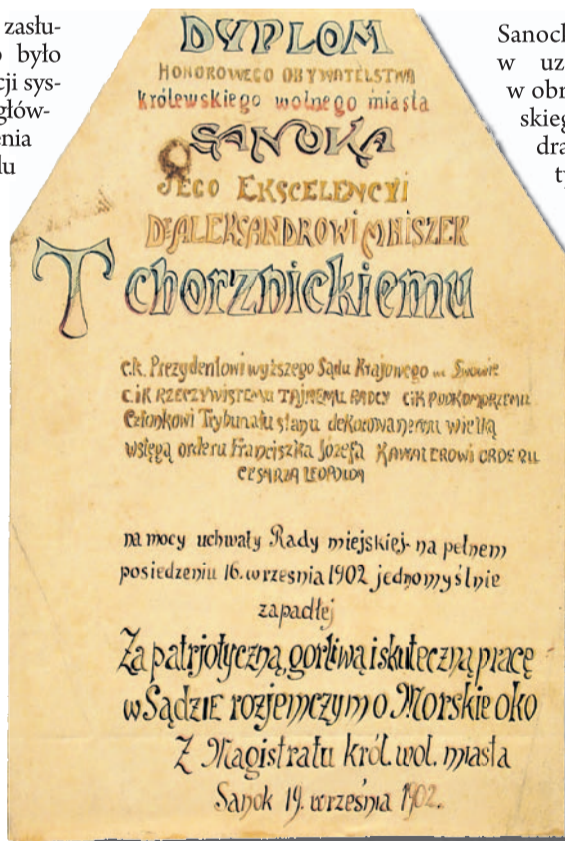 zasłu-
było
cji sys-
głów-
enia
DYPLOM
HONOROWEGO OBYWATELSTWA
królewskiego wolnego miasta
SANOKA
JEGO EKSCELENCYI
Dr ALEKSANDROWI MNISZEK
Tchorznickiemu
c.k. Prezydentowi wyższego Sądu Krajowego we Lwowie
C.iK RZECZYWISTEMU TAJNEMU RADCY CiK PODKOMORZEMU
Członkowi Trybunału stanu dekorowanemu wielką
wstęgą orderu Franciszka Józefa KAWALEROWI ORDERU
CESARZA LEOPOLDA
na mocy uchwały Rady miejskiej na pełnem
posiedzeniu 16. września 1902 jednomyślnie
zapadłej
Za patrjotyczną, gorliwą i skuteczną pracę
w SądziE rozjemczym o Morskie oko
Z Magistratu król. wol. miasta
Sanok 19. września 1902.
Sanock
w uz
w obr
skieg
dra
ty